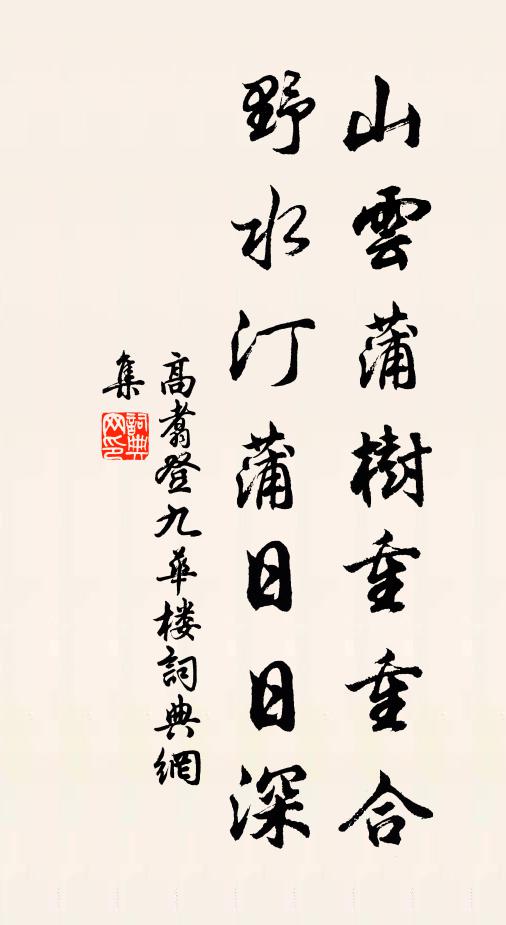 山雲蒲樹重重合
野水汀蒲日日深
高翥登九華楼詞典網
集
詞典
网印